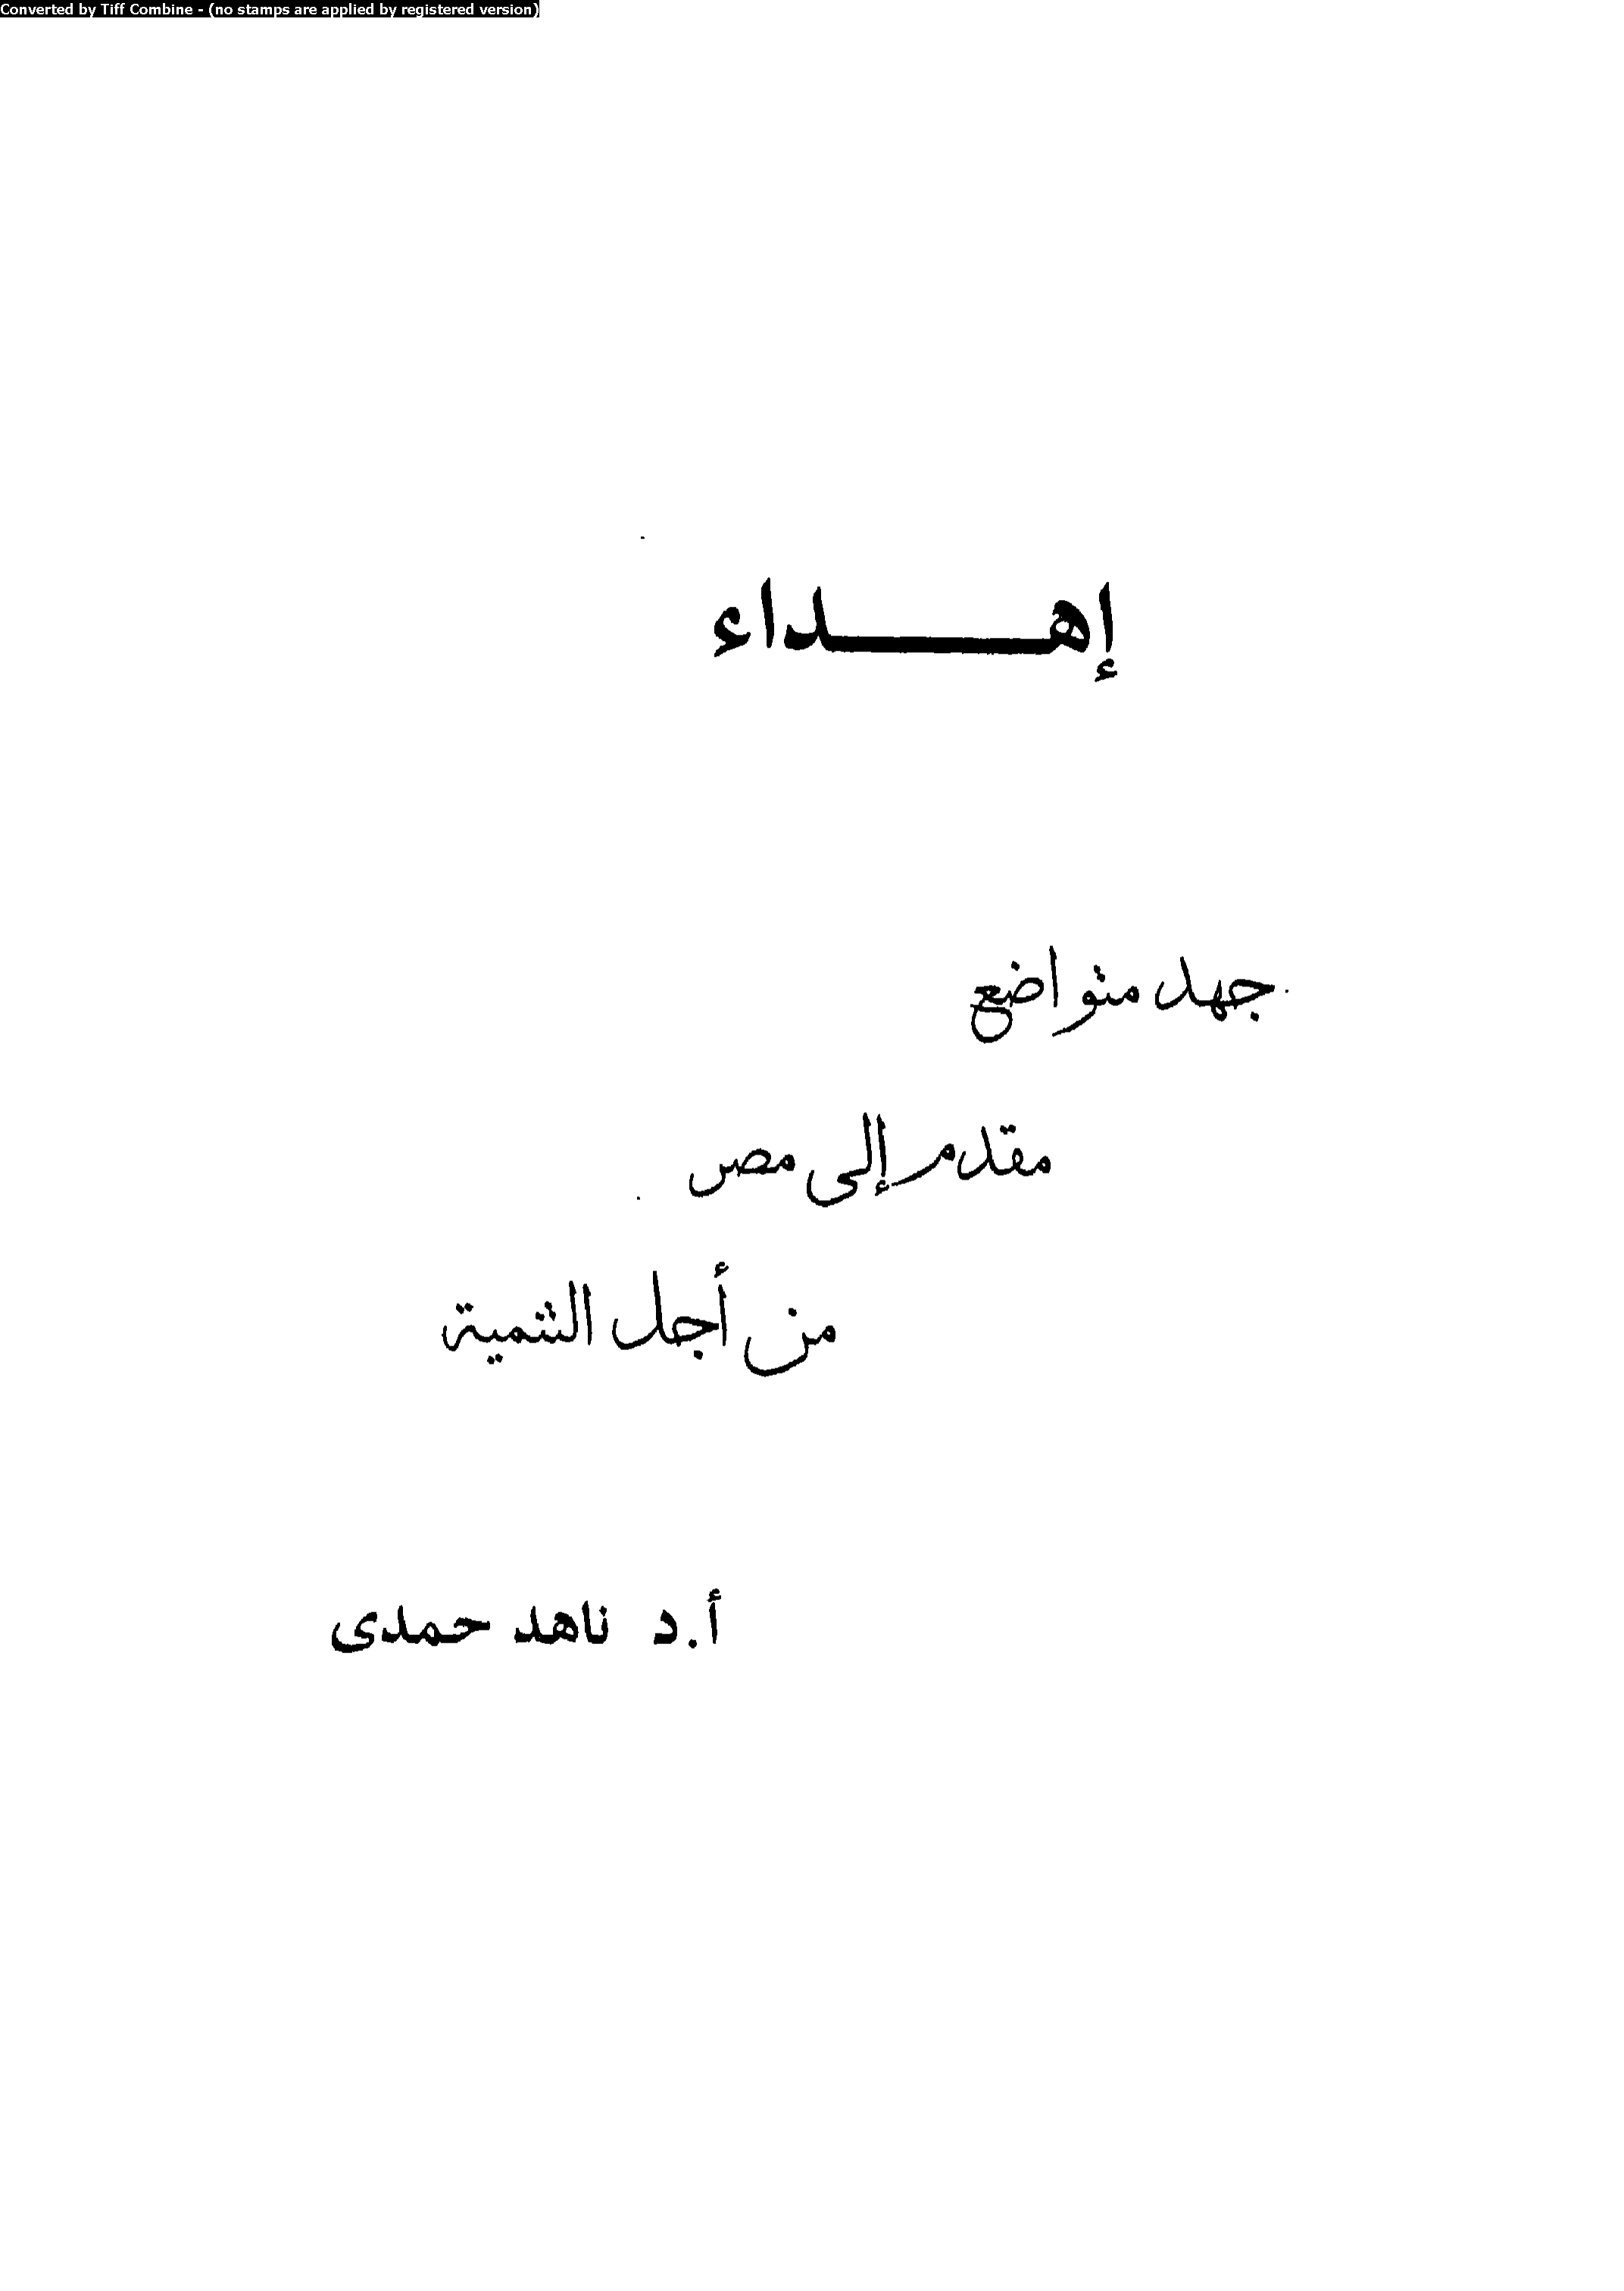 Converted by Tiff Combine - (no stamps are applied by registered version)
إهـــــداء
جهد متواضع
مقدم إلى مصر
من أجل التنمية
أ.د ناهد حمدى